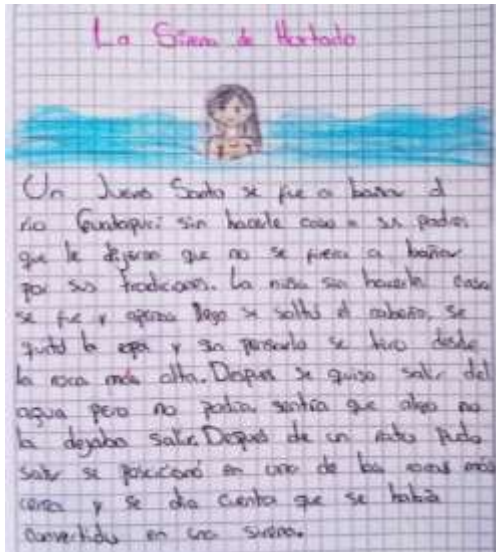 La Sirena de Hurtado
Un Jueves Santo se fue a bañar al
río Guatapurí sin hacerle caso a sus padres
que le dijeron que no se fuera a bañar
por sus tradiciones. La niña sin hacerles caso
se fue y apenas llego se soltó el cabello, se
quitó la ropa y sin pensarlo se tiro desde
la roca más alta. Despues se quiso salir del
agua pero no podia sentía que algo no
la dejaba salir. Despues de un rato pudo
salir se posicionó en una de las rocas más
cerca y se dio cuenta que se había
convertido en una sirena.